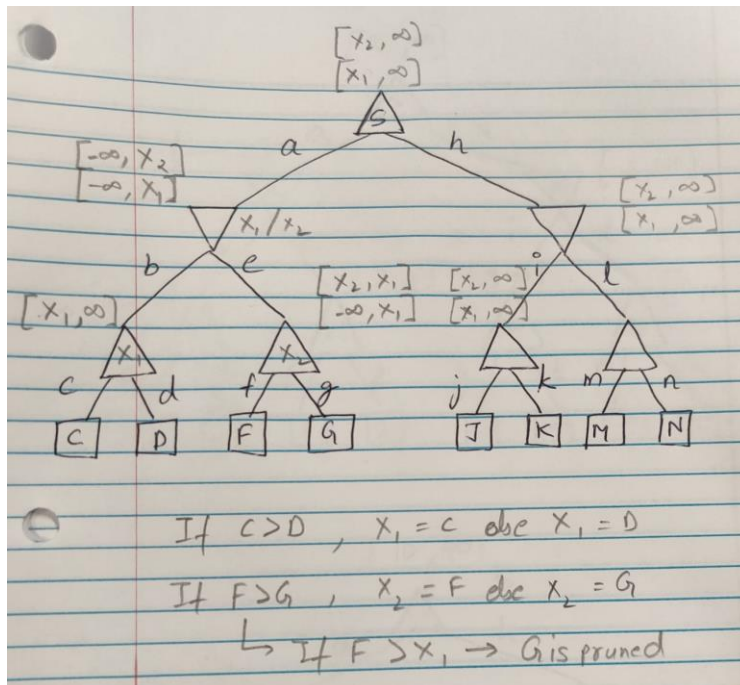 [x₂, ∞)
[x₁, ∞)
S
a h
[-∞, x₂]
[-∞, x₁]
x₁/x₂
[x₂, ∞)
[x₁, ∞)
b e i l
[x₁, ∞)
[x₂, x₁]
[-∞, x₁]
[x₂, ∞)
[x₁, ∞)
x₁ x₂
c d f g j k m n
C D F G J K M N
If C>D , x₁ = C else x₁ = D
If F>G , x₂ = F else x₂ = G
↳ If F > x₁ → G is pruned